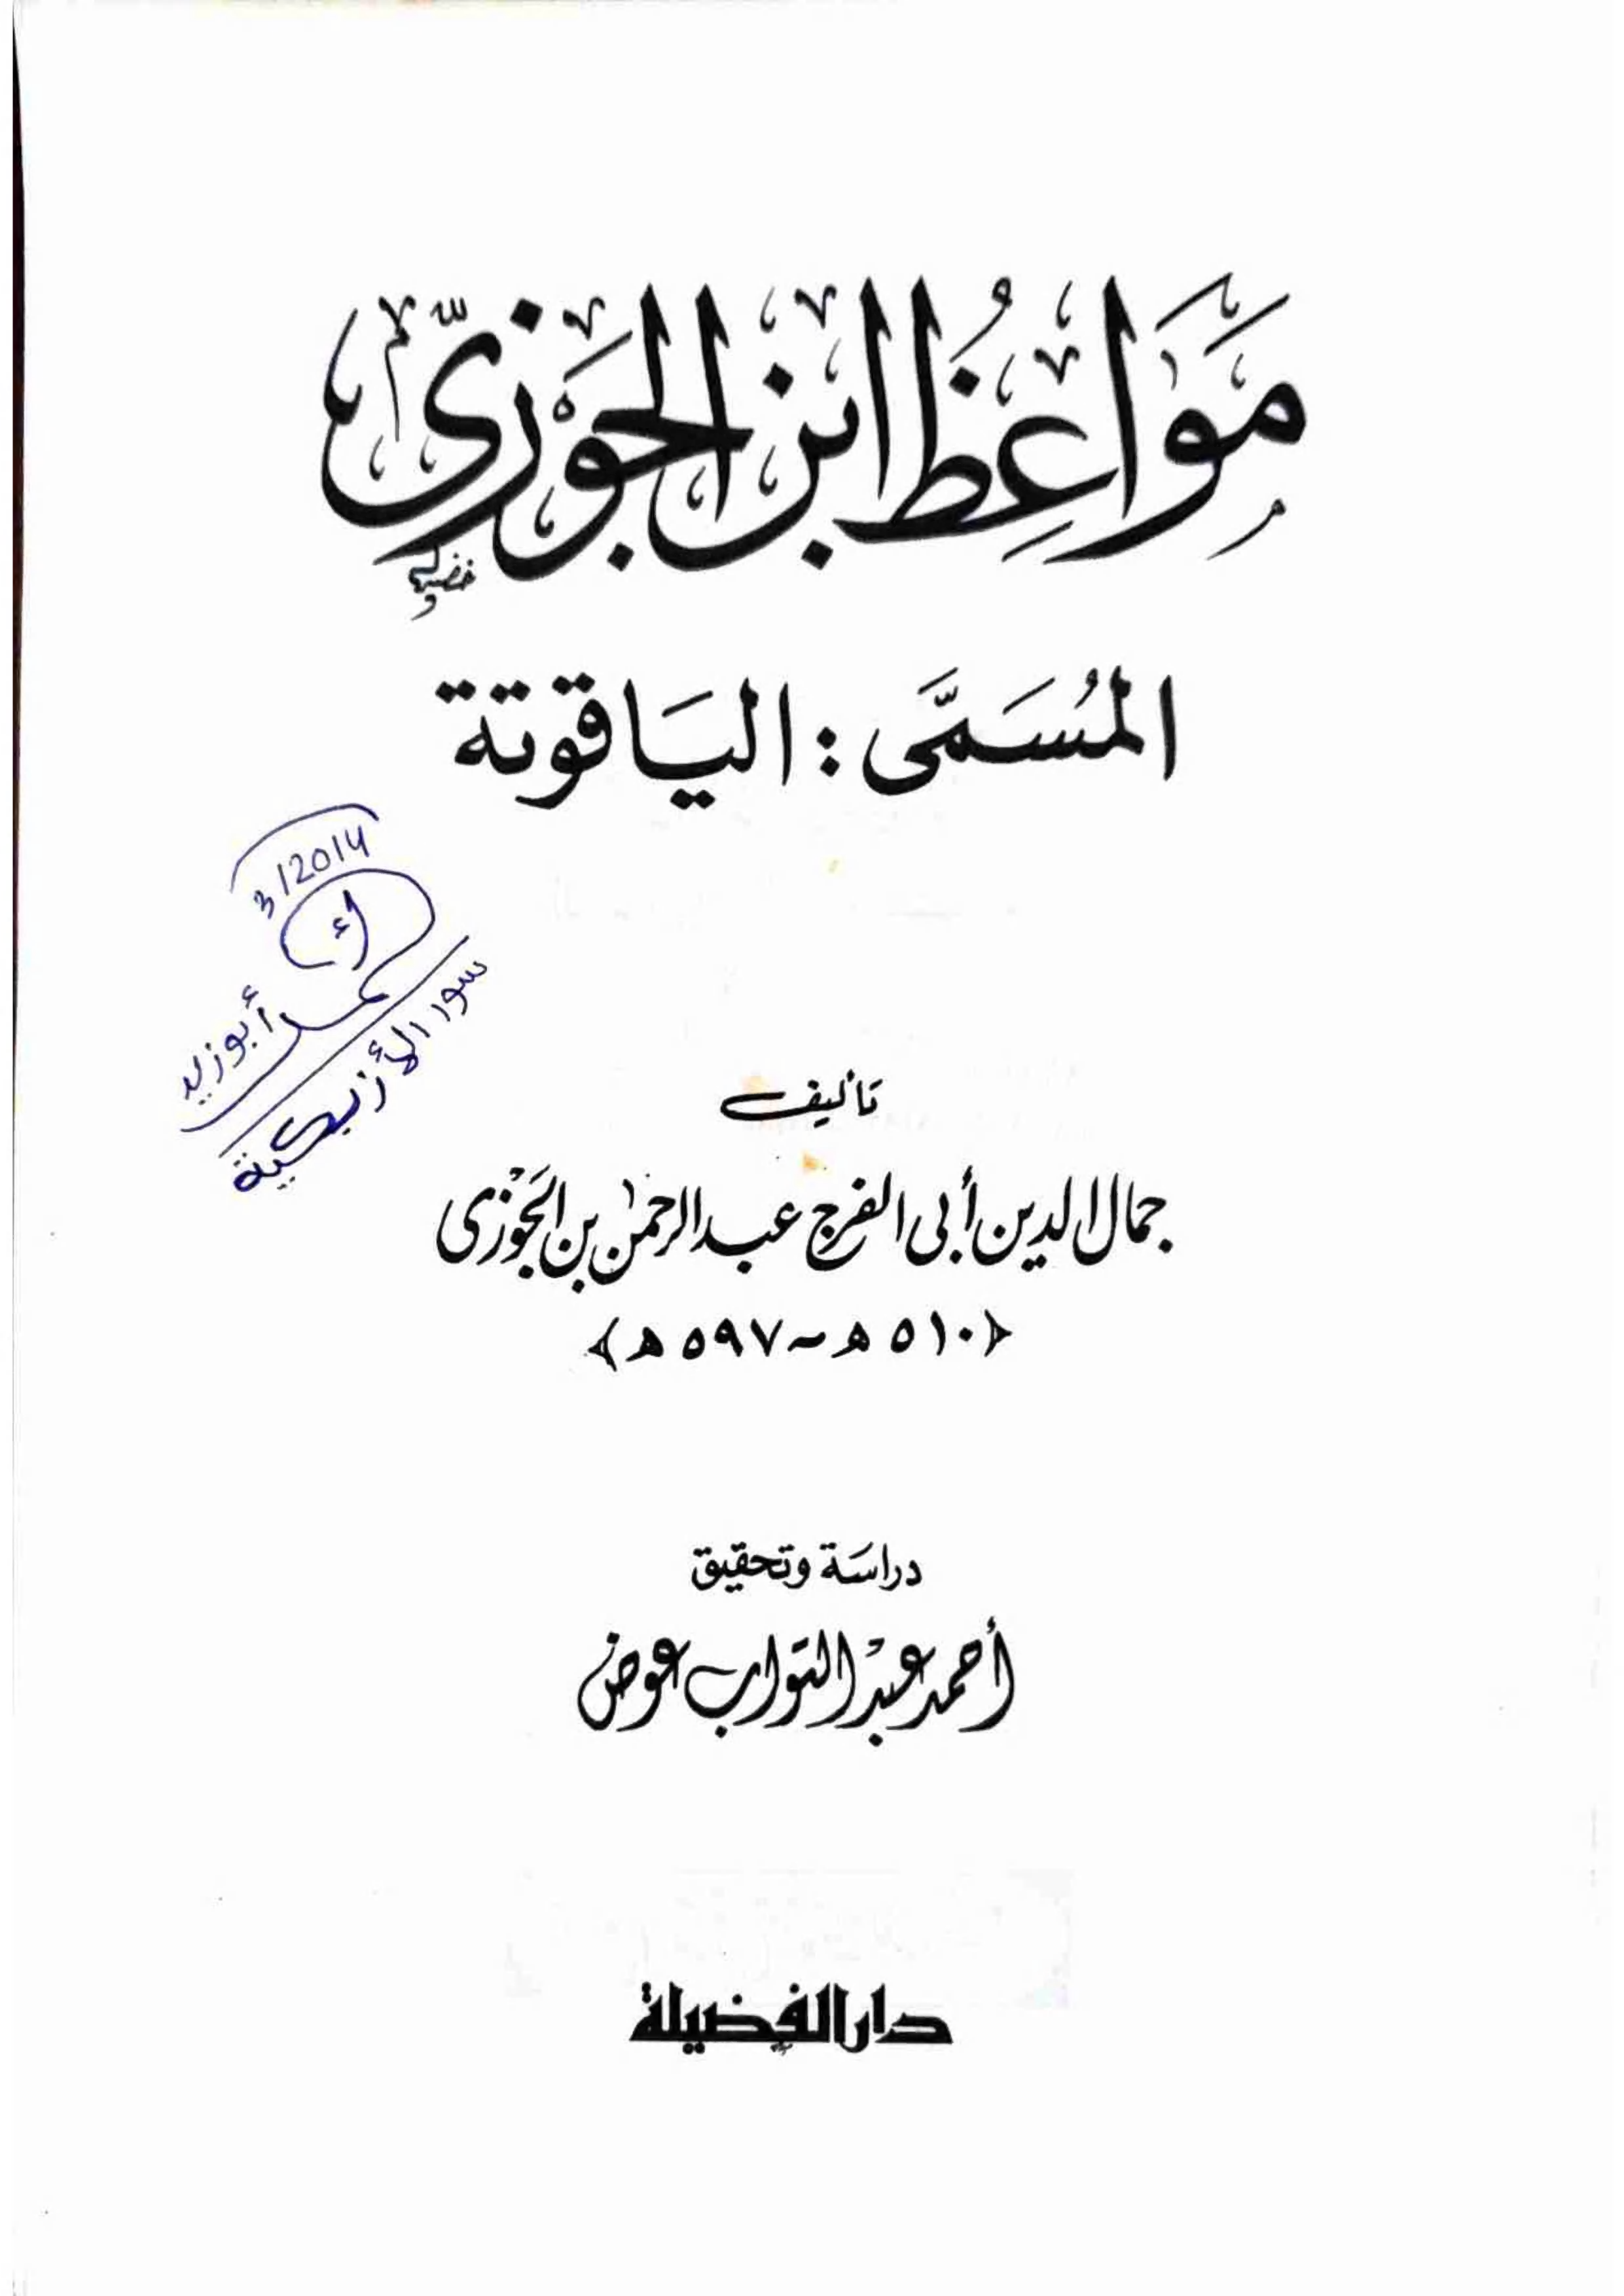 مَوَاعِظُ ابْنِ الْجَوْزِيّ
خضير
المُسَمَّى : اليَاقوتة
3/2014
أبوزيد
سور الأزبكية
تأليف
جمال الدين أبى الفرج عبد الرحمٰن بن الجَوْزى
﴿٥١٠ ه‍ ~ ٥٩٧ ه‍﴾
دراسَة وتحقيق
أحمد عبْد التواب عوض
دار الفضيلة